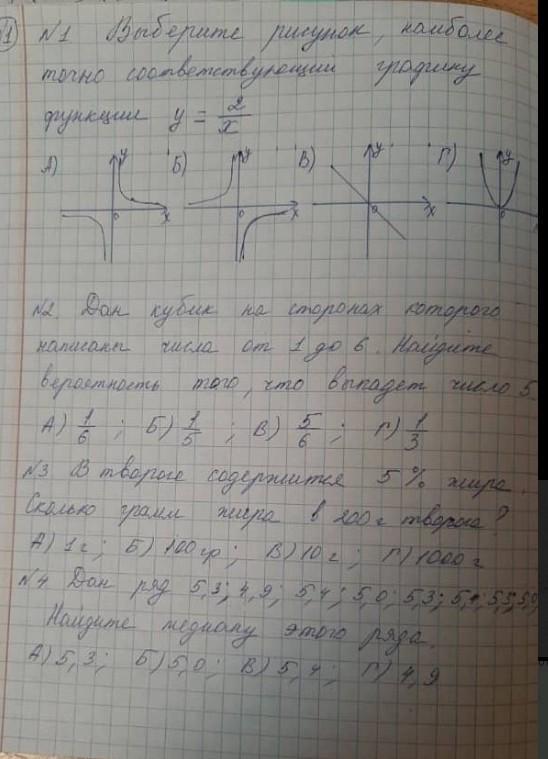 1) №1 Выберите рисунок, наиболее
точно соответствующий графику
функции y = 2/x
А) y 0 x Б) y 0 x В) y 0 x Г) y 0
№2. Дан кубик на сторонах которого
написаны числа от 1 до 6. Найдите
вероятность того, что выпадет число 5.
А) 1/6 ; Б) 1/5 ; В) 5/6 ; Г) 1/3
№3 В твороге содержится 5% жира.
Сколько грамм жира в 200 г творога?
А) 1 г ; Б) 100 гр ; В) 10 г ; Г) 1000 г
№4. Дан ряд 5,3; 4,9; 5,4; 5,0; 5,3;
Найдите медиану этого ряда.
А) 5,3; Б) 5,0; В) 5,4; Г) 4,9